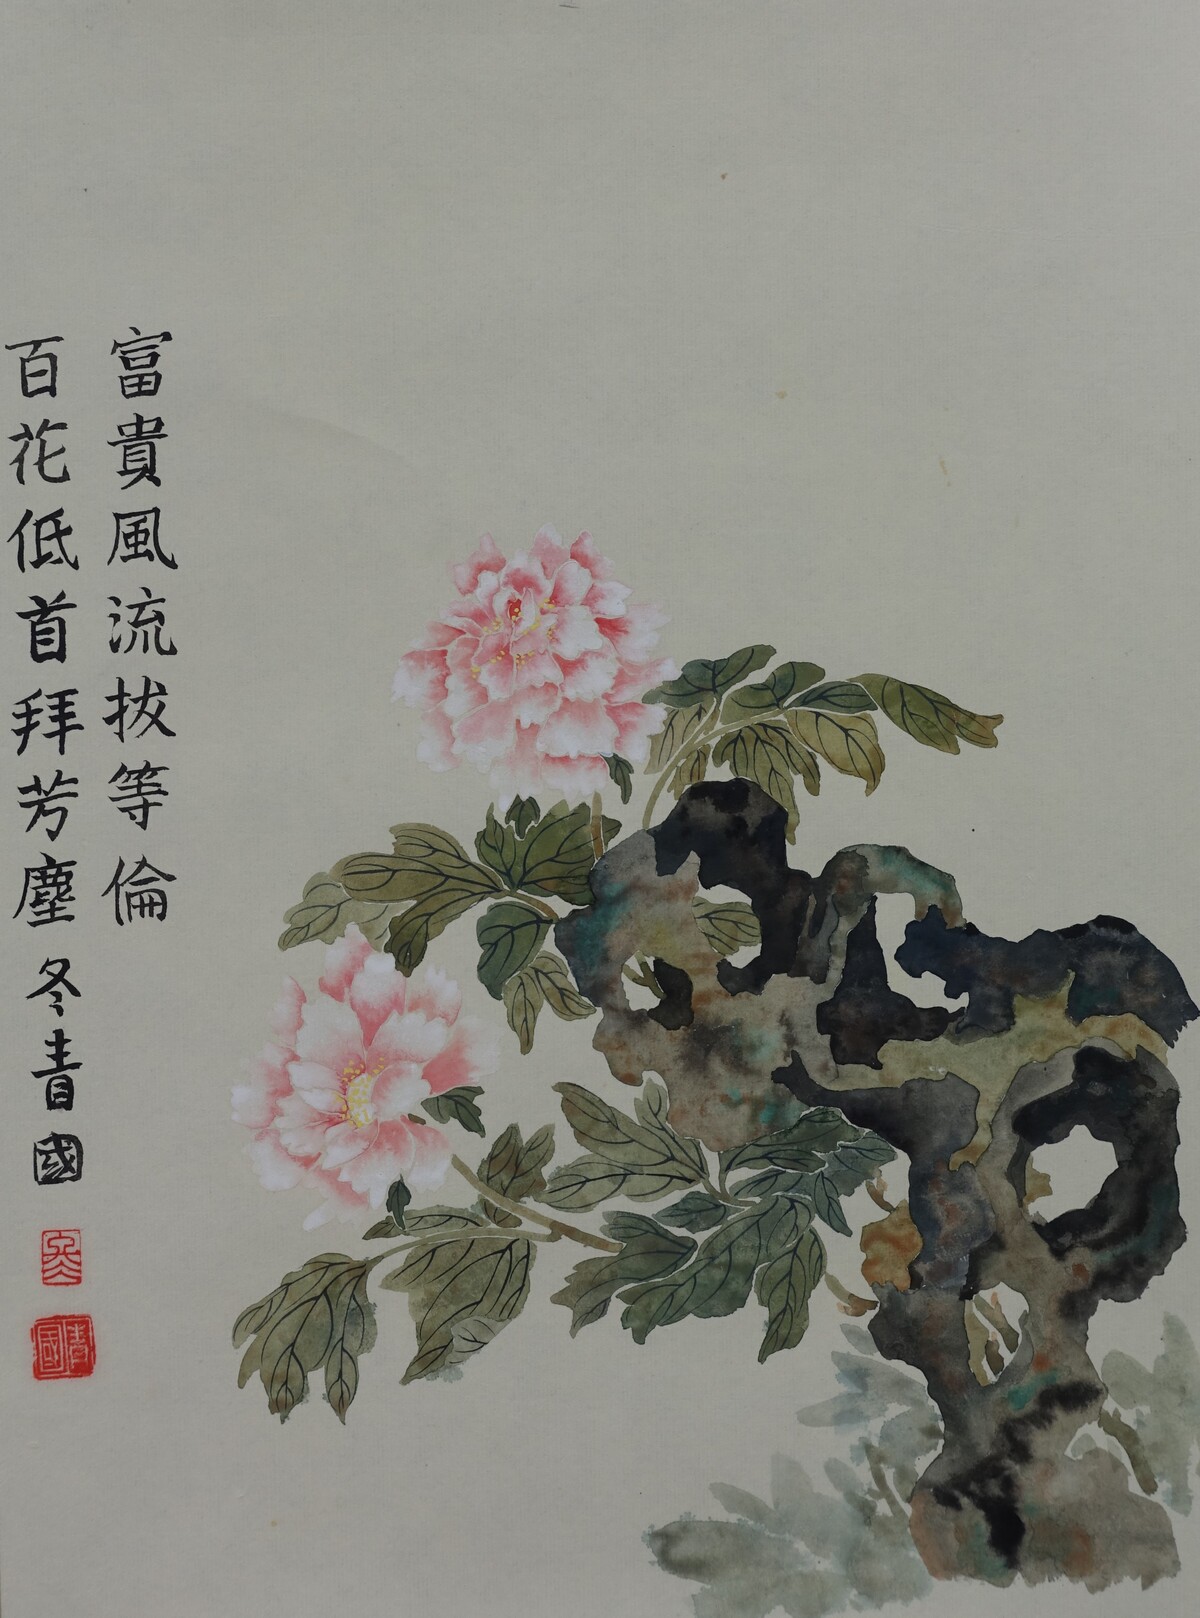 富貴風流拔等倫
百花低首拜芳塵 冬青國
冬
青國